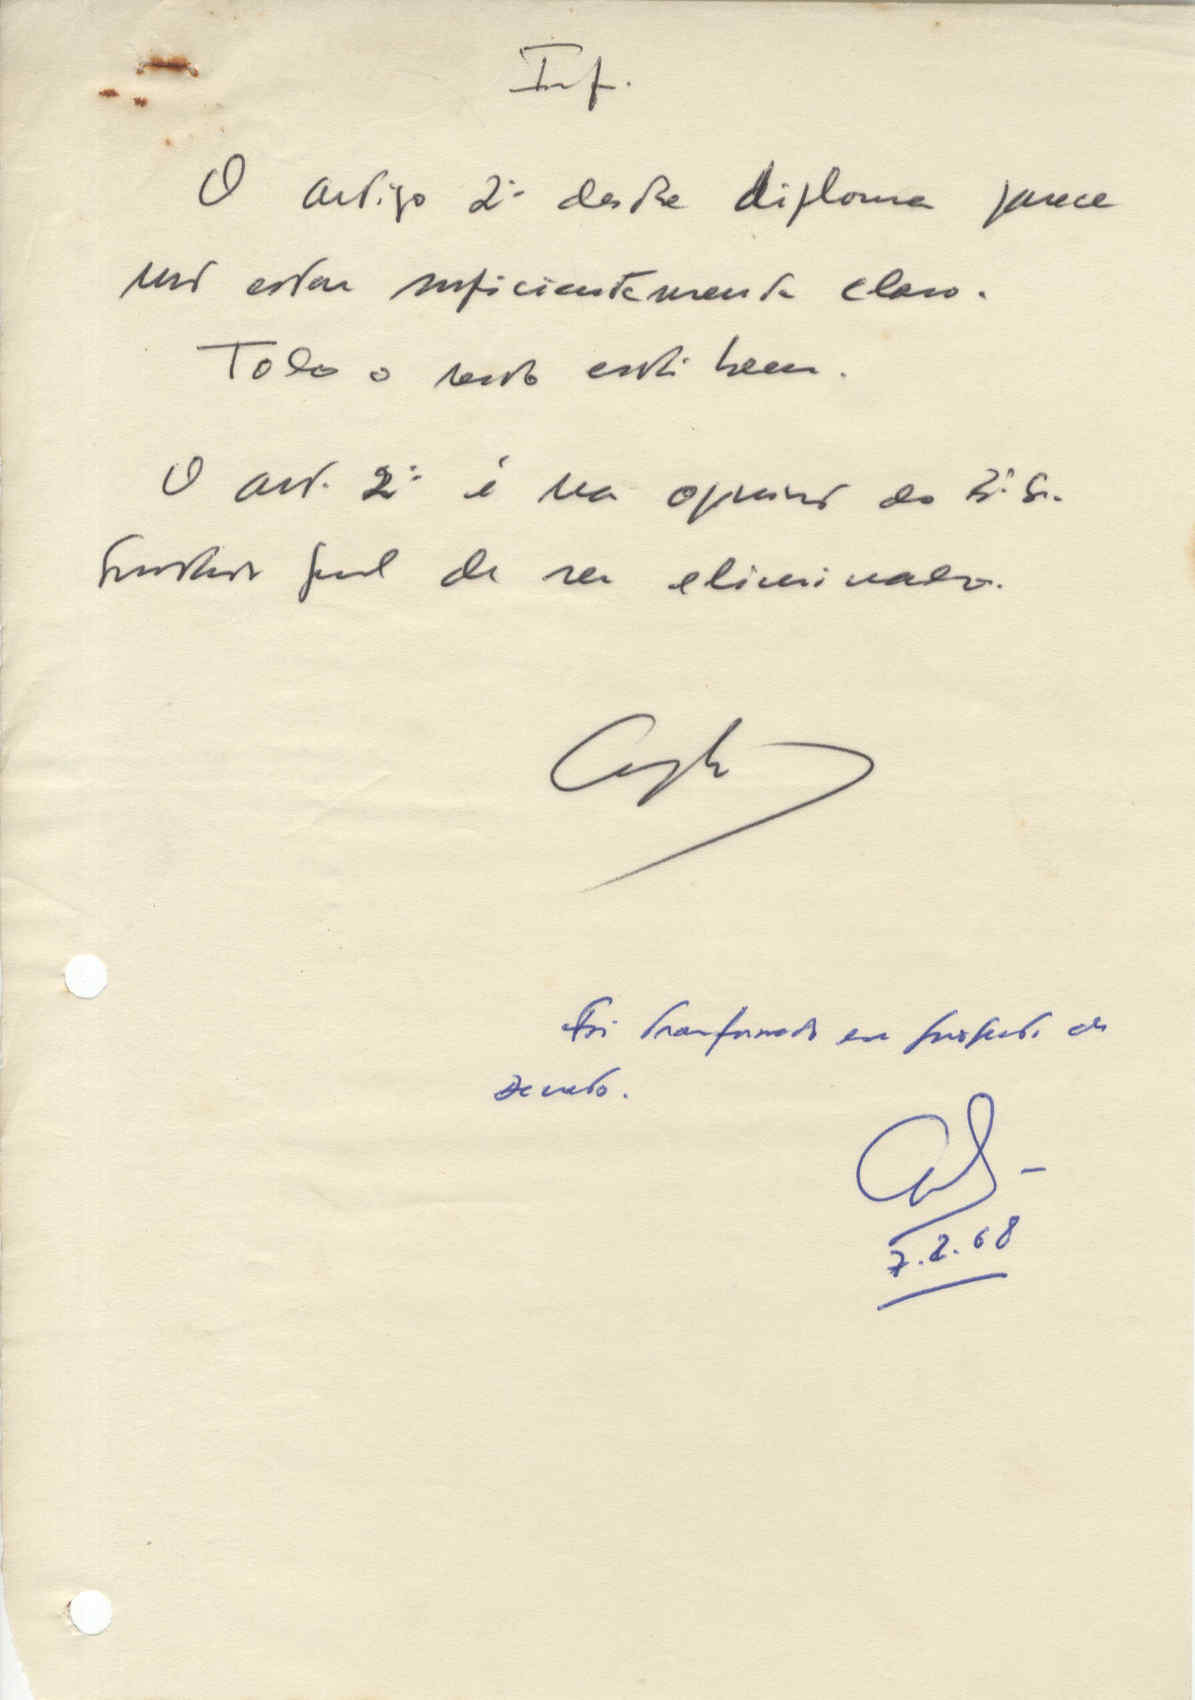 Inf.
O artigo 2º deste diploma parece
não estar suficientemente claro.
Todo o resto está bem.
O art. 2º é na opinião do
geral de ser eliminado.
Foi transformado em projecto de
Decreto.
7.2.68